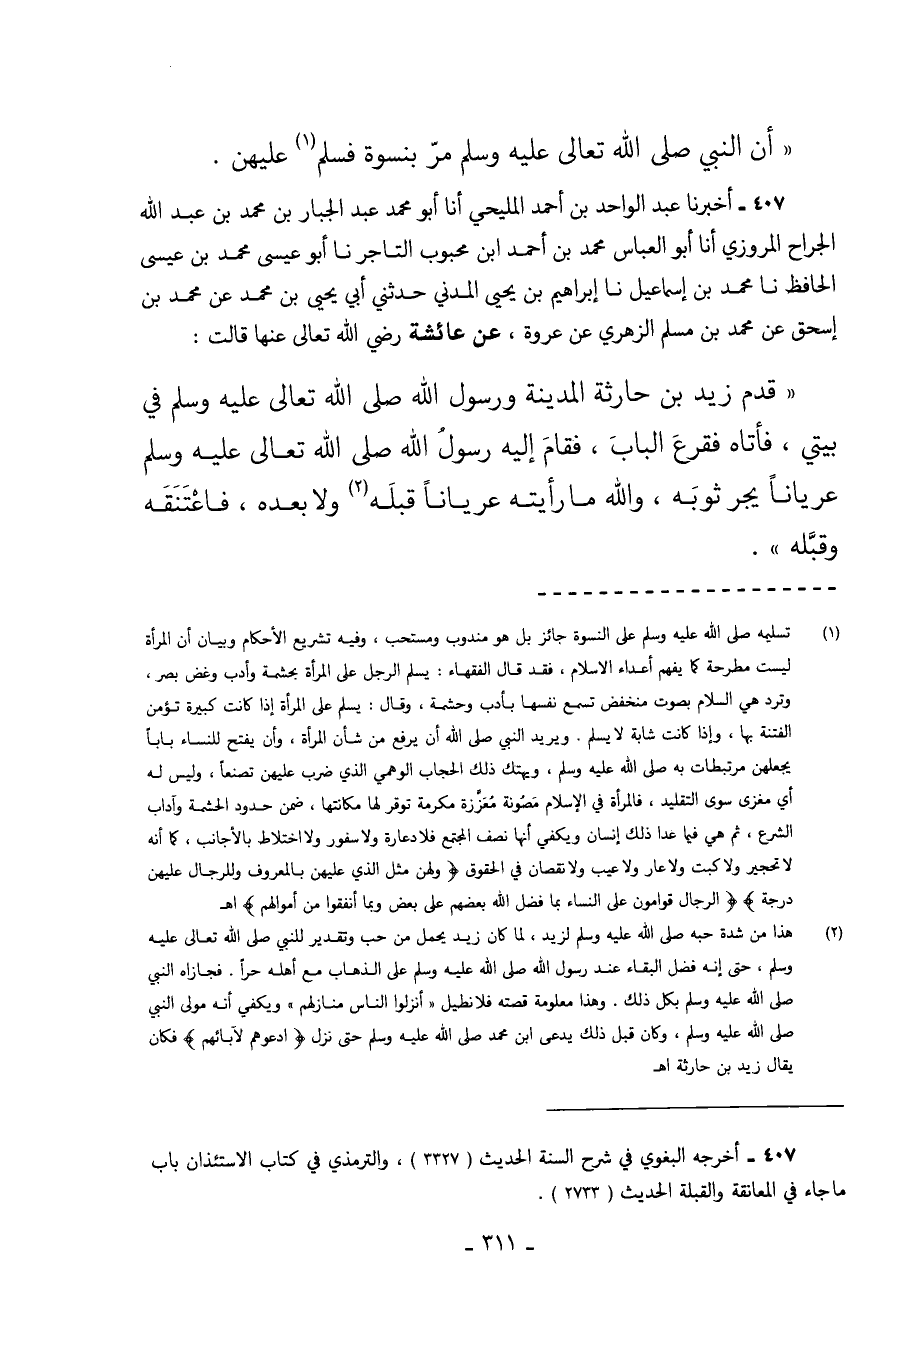 « أن النبي صلى الله تعالى عليه وسلم مرّ بنسوة فسلم(١) عليهن .
٤٠٧ ـ أخبرنا عبد الواحد بن أحمد المليحي أنا أبو محمد عبد الجبار بن محمد بن عبد الله
الجراح المروزي أنا أبو العباس محمد بن أحمد ابن محبوب التاجر نا أبو عيسى محمد بن عيسى
الحافظ نا محمد بن إسماعيل نا إبراهيم بن يحيى المدني حدثني أبي يحيى بن محمد عن محمد بن
إسحق عن محمد بن مسلم الزهري عن عروة ، عن عائشة رضي الله تعالى عنها قالت :
« قدم زيد بن حارثة المدينة ورسول الله صلى الله تعالى عليه وسلم في
بيتي ، فأتاه فقرعَ البابَ ، فقامَ إليه رسولُ الله صلى الله تعالى عليه وسلم
عرياناً يجر ثوبَه ، والله ما رأيته عرياناً قبلَه(٢) ولا بعده ، فاعْتَنَقَه
وقبَّله » .
(١) تسليمه صلى الله عليه وسلم على النسوة جائز بل هو مندوب ومستحب ، وفيه تشريع الأحكام وبيان أن المرأة
ليست مطرحة كما يفهم أعداء الاسلام ، فقد قال الفقهاء : يسلم الرجل على المرأة بحشمة وأدب وغض بصر ،
وترد هي السلام بصوت منخفض تسمع نفسها بأدب وحشمة ، وقال : يسلم على المرأة إذا كانت كبيرة تؤمن
الفتنة بها ، وإذا كانت شابة لا يسلم . ويريد النبي صلى الله أن يرفع من شأن المرأة ، وأن يفتح للنساء باباً
يجعلهن مرتبطات به صلى الله عليه وسلم ، ويهتك ذلك الحجاب الوهمي الذي ضرب عليهن تصنعاً ، وليس له
أي مغزى سوى التقليد ، فالمرأة في الإسلام مَصُونة مُعَزَّزة مكرمة توقر لها مكانتها ، ضمن حدود الحشمة وآداب
الشرع ، ثم هي فيما عدا ذلك إنسان ويكفي أنها نصف المجتمع فلا دعارة ولا سفور ولا اختلاط بالأجانب ، كما أنه
لا تحجير ولا كبت ولا عار ولا عيب ولا نقصان في الحقوق ﴿ ولهن مثل الذي عليهن بالمعروف وللرجال عليهن
درجة ﴾ ﴿ الرجال قوامون على النساء بما فضل الله بعضهم على بعض وبما أنفقوا من أموالهم ﴾ اهـ
(٢) هذا من شدة حبه صلى الله عليه وسلم لزيد ، لما كان زيد يحمل من حب وتقدير للنبي صلى الله تعالى عليه
وسلم ، حتى إنه فضل البقاء عند رسول الله صلى الله عليه وسلم على الذهاب مع أهله حراً . فجازاه النبي
صلى الله عليه وسلم بكل ذلك . وهذا معلومة قصته فلا نطيل « أنزلوا الناس منازلهم » ويكفي أنه مولى النبي
صلى الله عليه وسلم ، وكان قبل ذلك يدعى ابن محمد صلى الله عليه وسلم حتى نزل ﴿ ادعوهم لآبائهم ﴾ فكان
يقال زيد بن حارثة اهـ
٤٠٧ ـ أخرجه البغوي في شرح السنة الحديث ( ٣٣٢٧ ) ، والترمذي في كتاب الاستئذان باب
ما جاء في المعانقة والقبلة الحديث ( ٢٧٣٣ ) .
ـ ٣١١ ـ